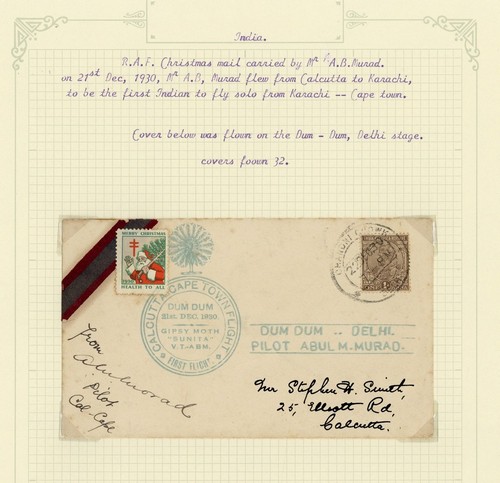 India.
R.A.F. Christmas mail carried by Mr A.B.Murad.
on 21st Dec, 1930, Mr A.B, Murad flew from Calcutta to Karachi,
to be the first Indian to fly solo from Karachi -- Cape town.
Cover below was flown on the Dum - Dum, Delhi stage.
covers foown 32.
MERRY CHRISTMAS
1930
HEALTH TO ALL
CALCUTTA-CAPE TOWN FLIGHT
DUM DUM
21st. DEC. 1930.
GIPSY MOTH
"SUNITA"
V.T-ABM.
FIRST FLIGHT
DUM DUM .. DELHI.
PILOT ABUL M. MURAD.
From
Pilot
Cal-Cape
Mr Stephen H. Smith,
25, Elliott Rd,
Calcutta.